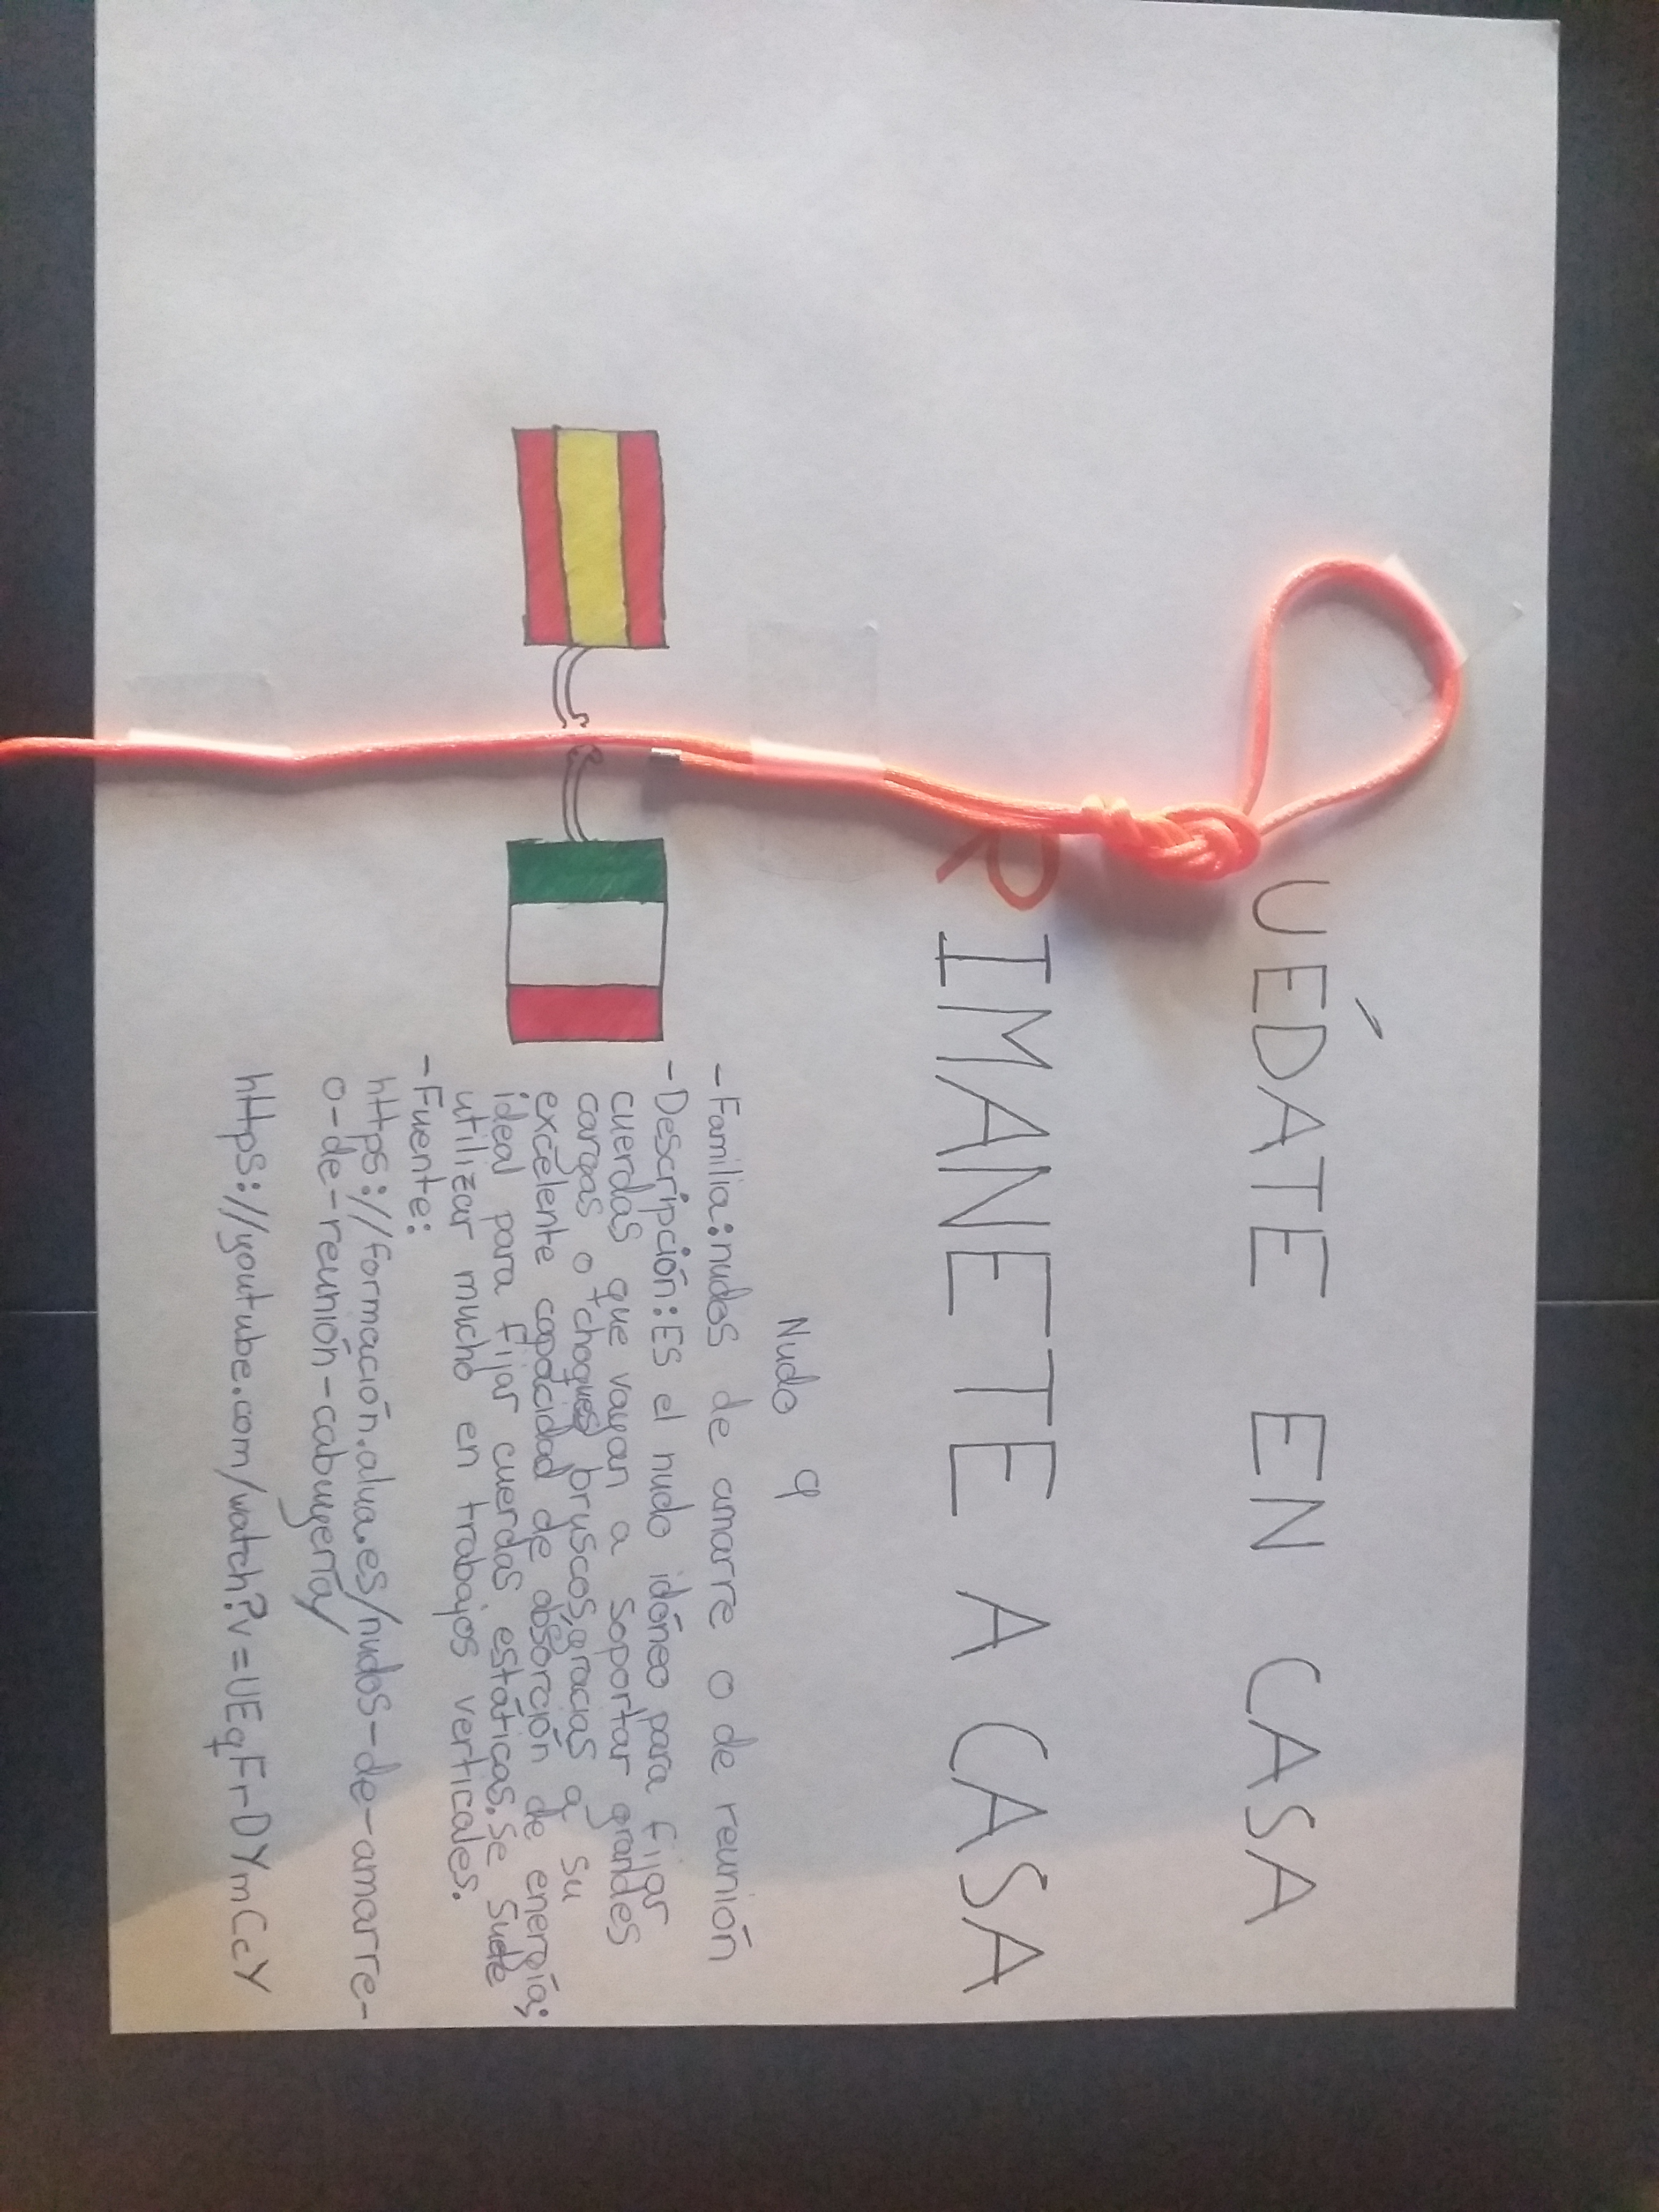 UÉDATE EN CASA
RIMANETE A CASA
Nudo 9
-Familia: nudos de amarre o de reunión
-Descripción: Es el nudo idóneo para fijar
cuerdas que vayan a soportar grandes
cargas o choques bruscos, gracias a su
excelente capacidad de absorción de energía;
ideal para fijar cuerdas estáticas. Se suele
utilizar mucho en trabajos verticales.
-Fuente:
https://formación.alua.es/nudos-de-amarre-
o-de-reunión-cabuyería/
https://youtube.com/watch?v=UEqFrDYmCcY